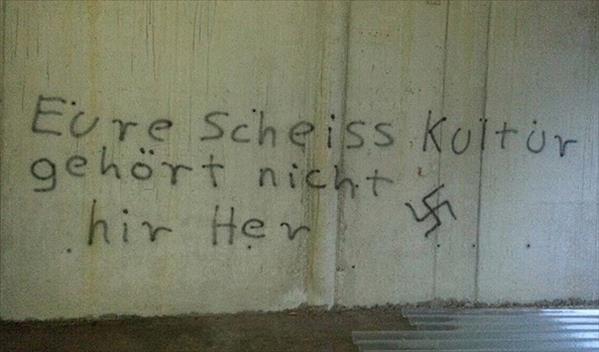 Eure Scheiss Kultur
gehört nicht
hir Her